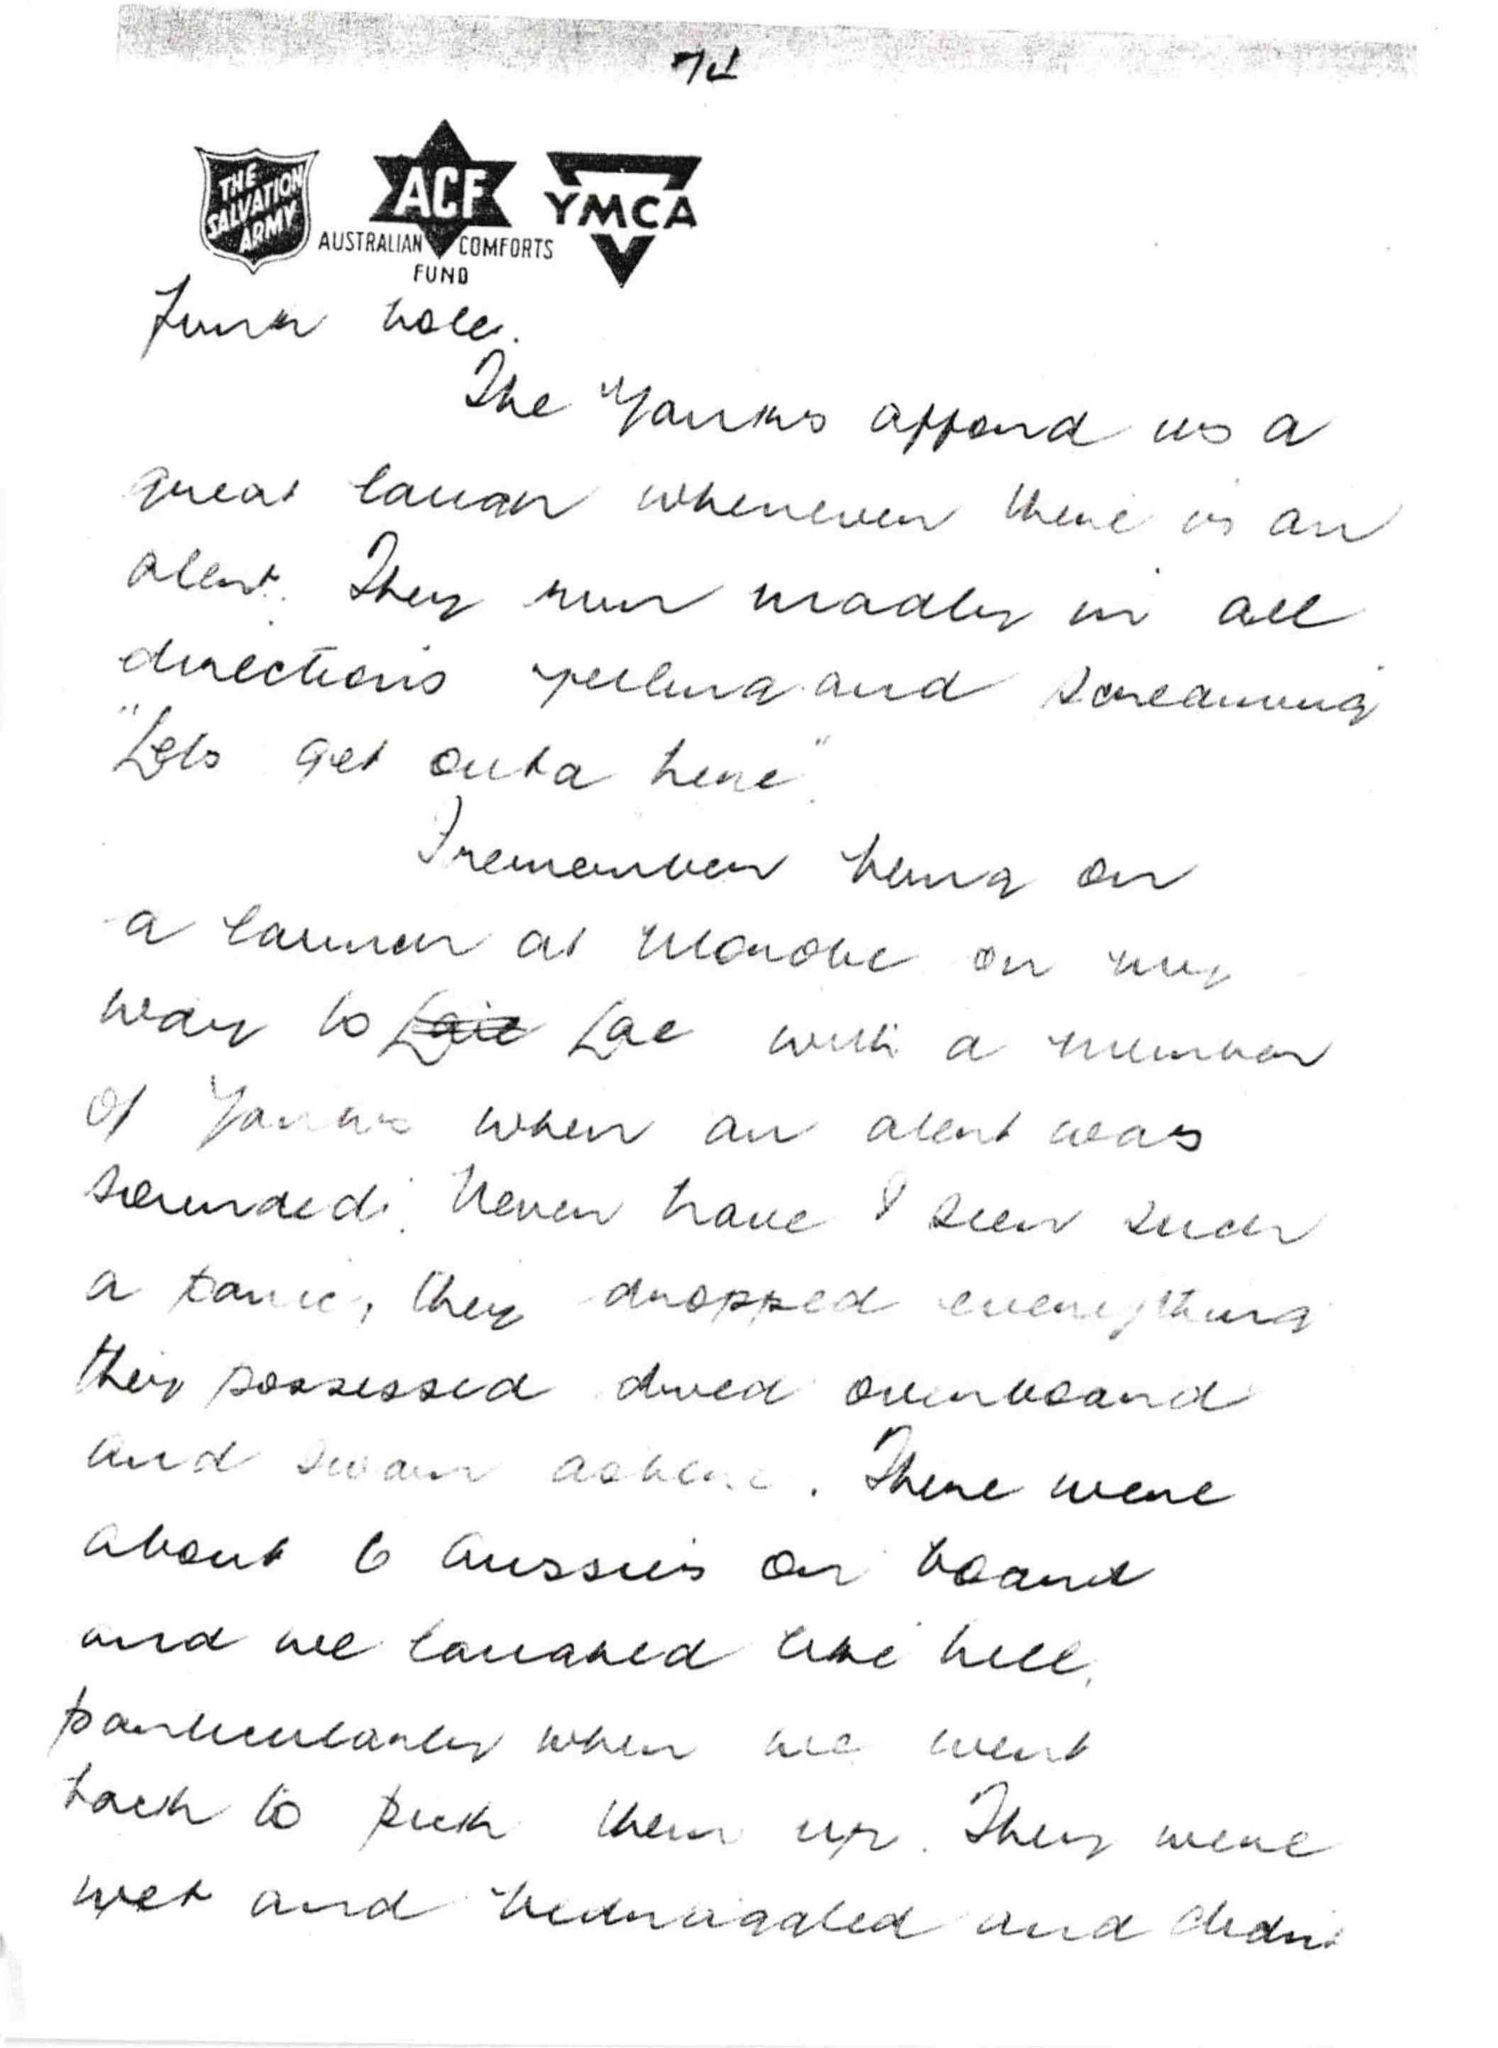 THE
SALVATION
ARMY
ACF
AUSTRALIAN COMFORTS
FUND
YMCA
funk hole.
The Yanks afford us a
great laugh whenever there is an
alert. They run madly in all
directions yelling and screaming
"Lets get outa here".
I remember being on
a launch at Morobe on my
way to Laie Lae with a number
of Yanks when an alert was
sounded. Never have I seen such
a panic, they dropped everything
they possessed dived overboard
and swam ashore. There were
about 6 Aussies on board
and we laughed like hell,
particularly when we went
back to pick them up. They were
wet and bedraggled and didnt